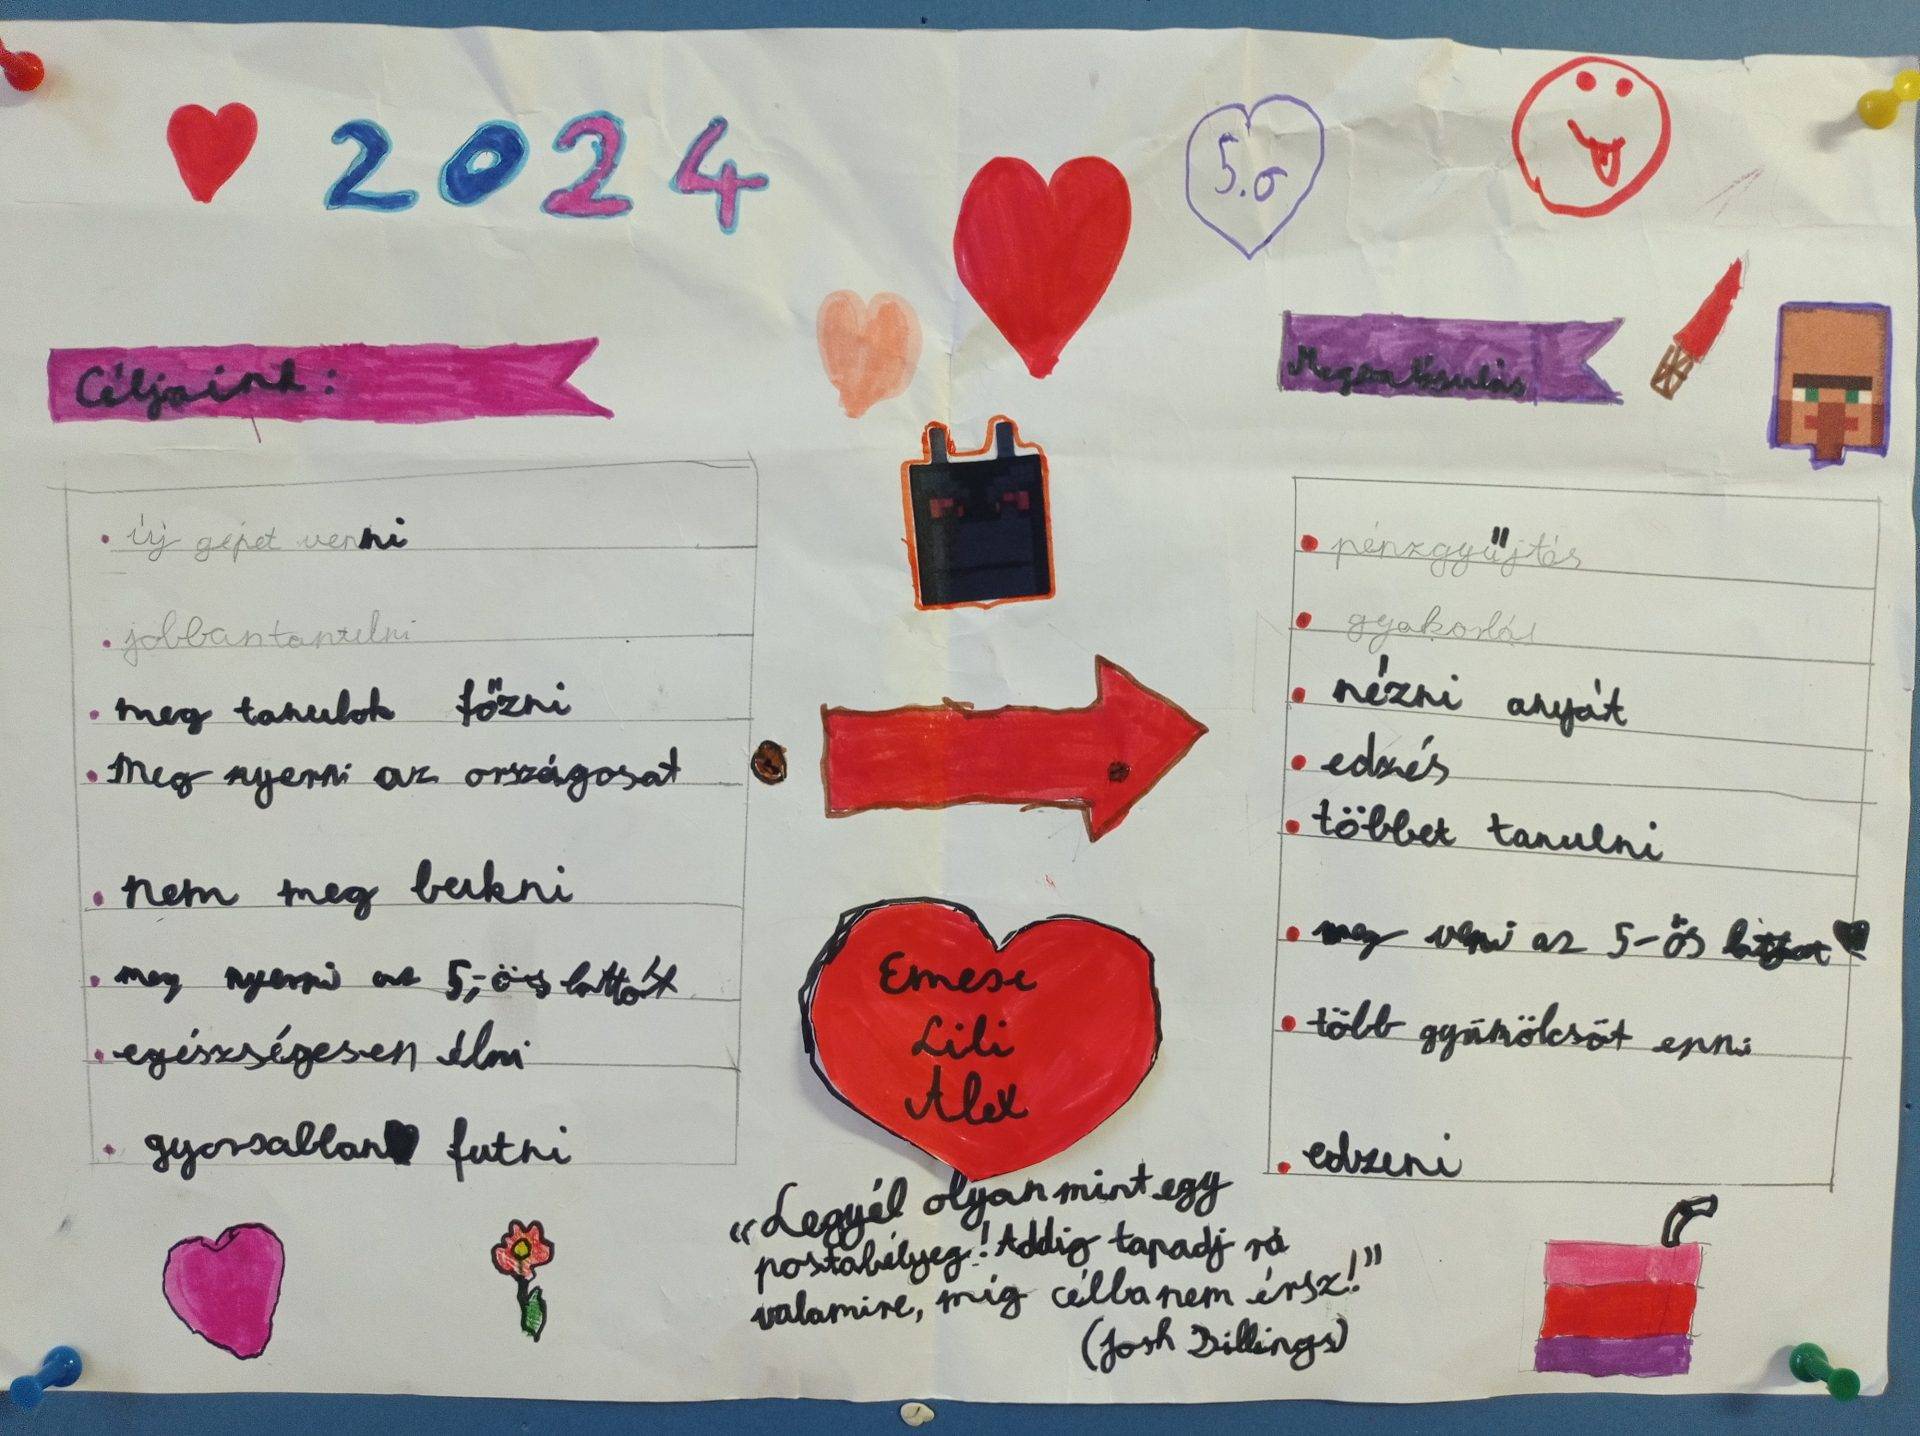 2024
5.o
Céljaink:
új gépet venni
jobban tanulni
meg tanulok főzni
Meg nyerni az országosat
nem meg bukni
meg nyerni az 5,-ös lottót
egészségesen élni
gyorsabban futni
Emese
Lili
Alex
"Legyél olyan mint egy
postabélyeg! Addig tapadj rá
valamire, míg célba nem érsz!"
(Josh Billings)
Megvalósulás
pénzgyűjtés
gyakorlás
nézni anyát
edzés
többet tanulni
meg venni az 5-ős
több gyümölcsöt enni
edzeni